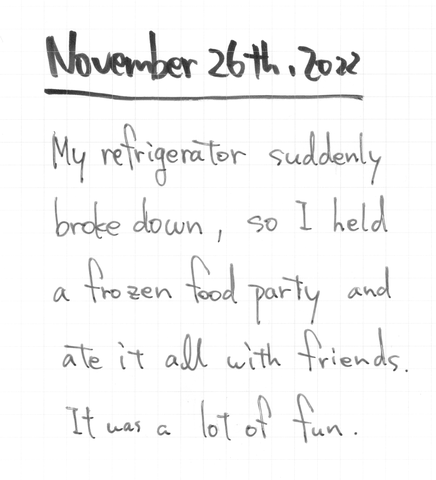 November 26th, 2022
My refrigerator suddenly
broke down, so I held
a frozen food party and
ate it all with friends.
It was a lot of fun.